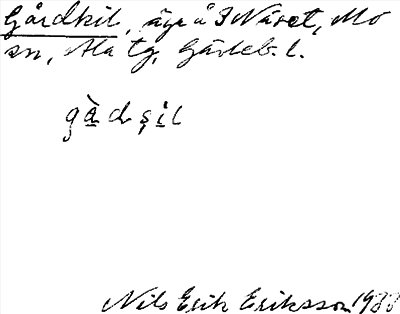 Gårdkil, äga å I Näset, Mo
sn, Ala tg, Gävleb. l.
gàdşil
Nils Erik Eriksson 1933